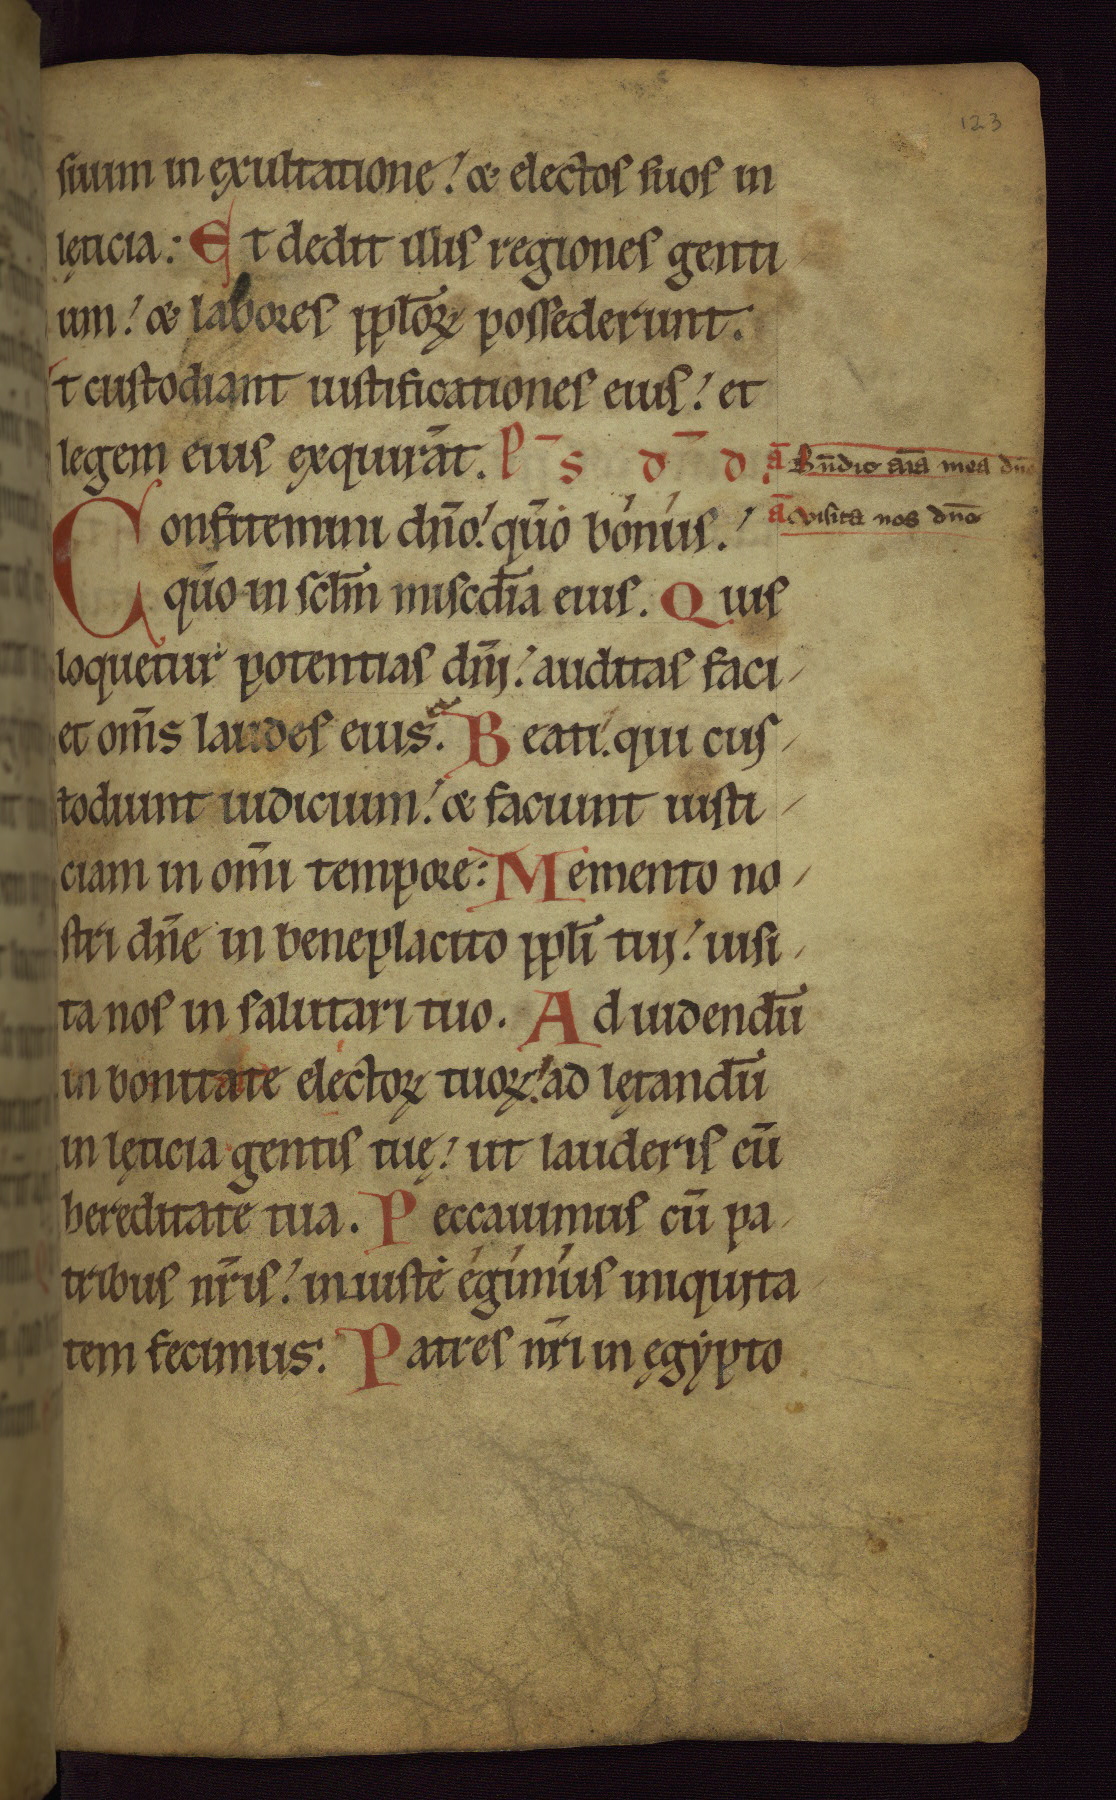 123
suum in exultatione! & electos suos in
lęticia: Et dedit illis regiones genti
um! & labores pploꝝ possederunt.
t custodiant iustificationes eius! et
legem eius exquirāt. P̄ s d̄ d
ā Bn̄dic aīa mea dn̄o
ā visita nos dn̄e
Confitemini dn̄o! qūo bonus.
qūo in sclm̄ miscd̄ia eius. Quis
loquetur potentias dn̄i! auditas faci
et om̄s laudes eius. Beati qui cus
todiunt iudicium! & faciunt iusti
ciam in om̄i tempore: Memento no
stri dn̄e in beneplacito ppl̄i tui! uisi
ta nos in salutari tuo. Ad uidendū
in bonitate electoꝝ tuoꝝ! ad lętandū
in lęticia gentis tuę! ut lauderis cū
hereditate tua. Peccauimus cū pa
tribus nr̄is! iniuste egimus iniquita
tem fecimus: Patres nr̄i in ęgypto